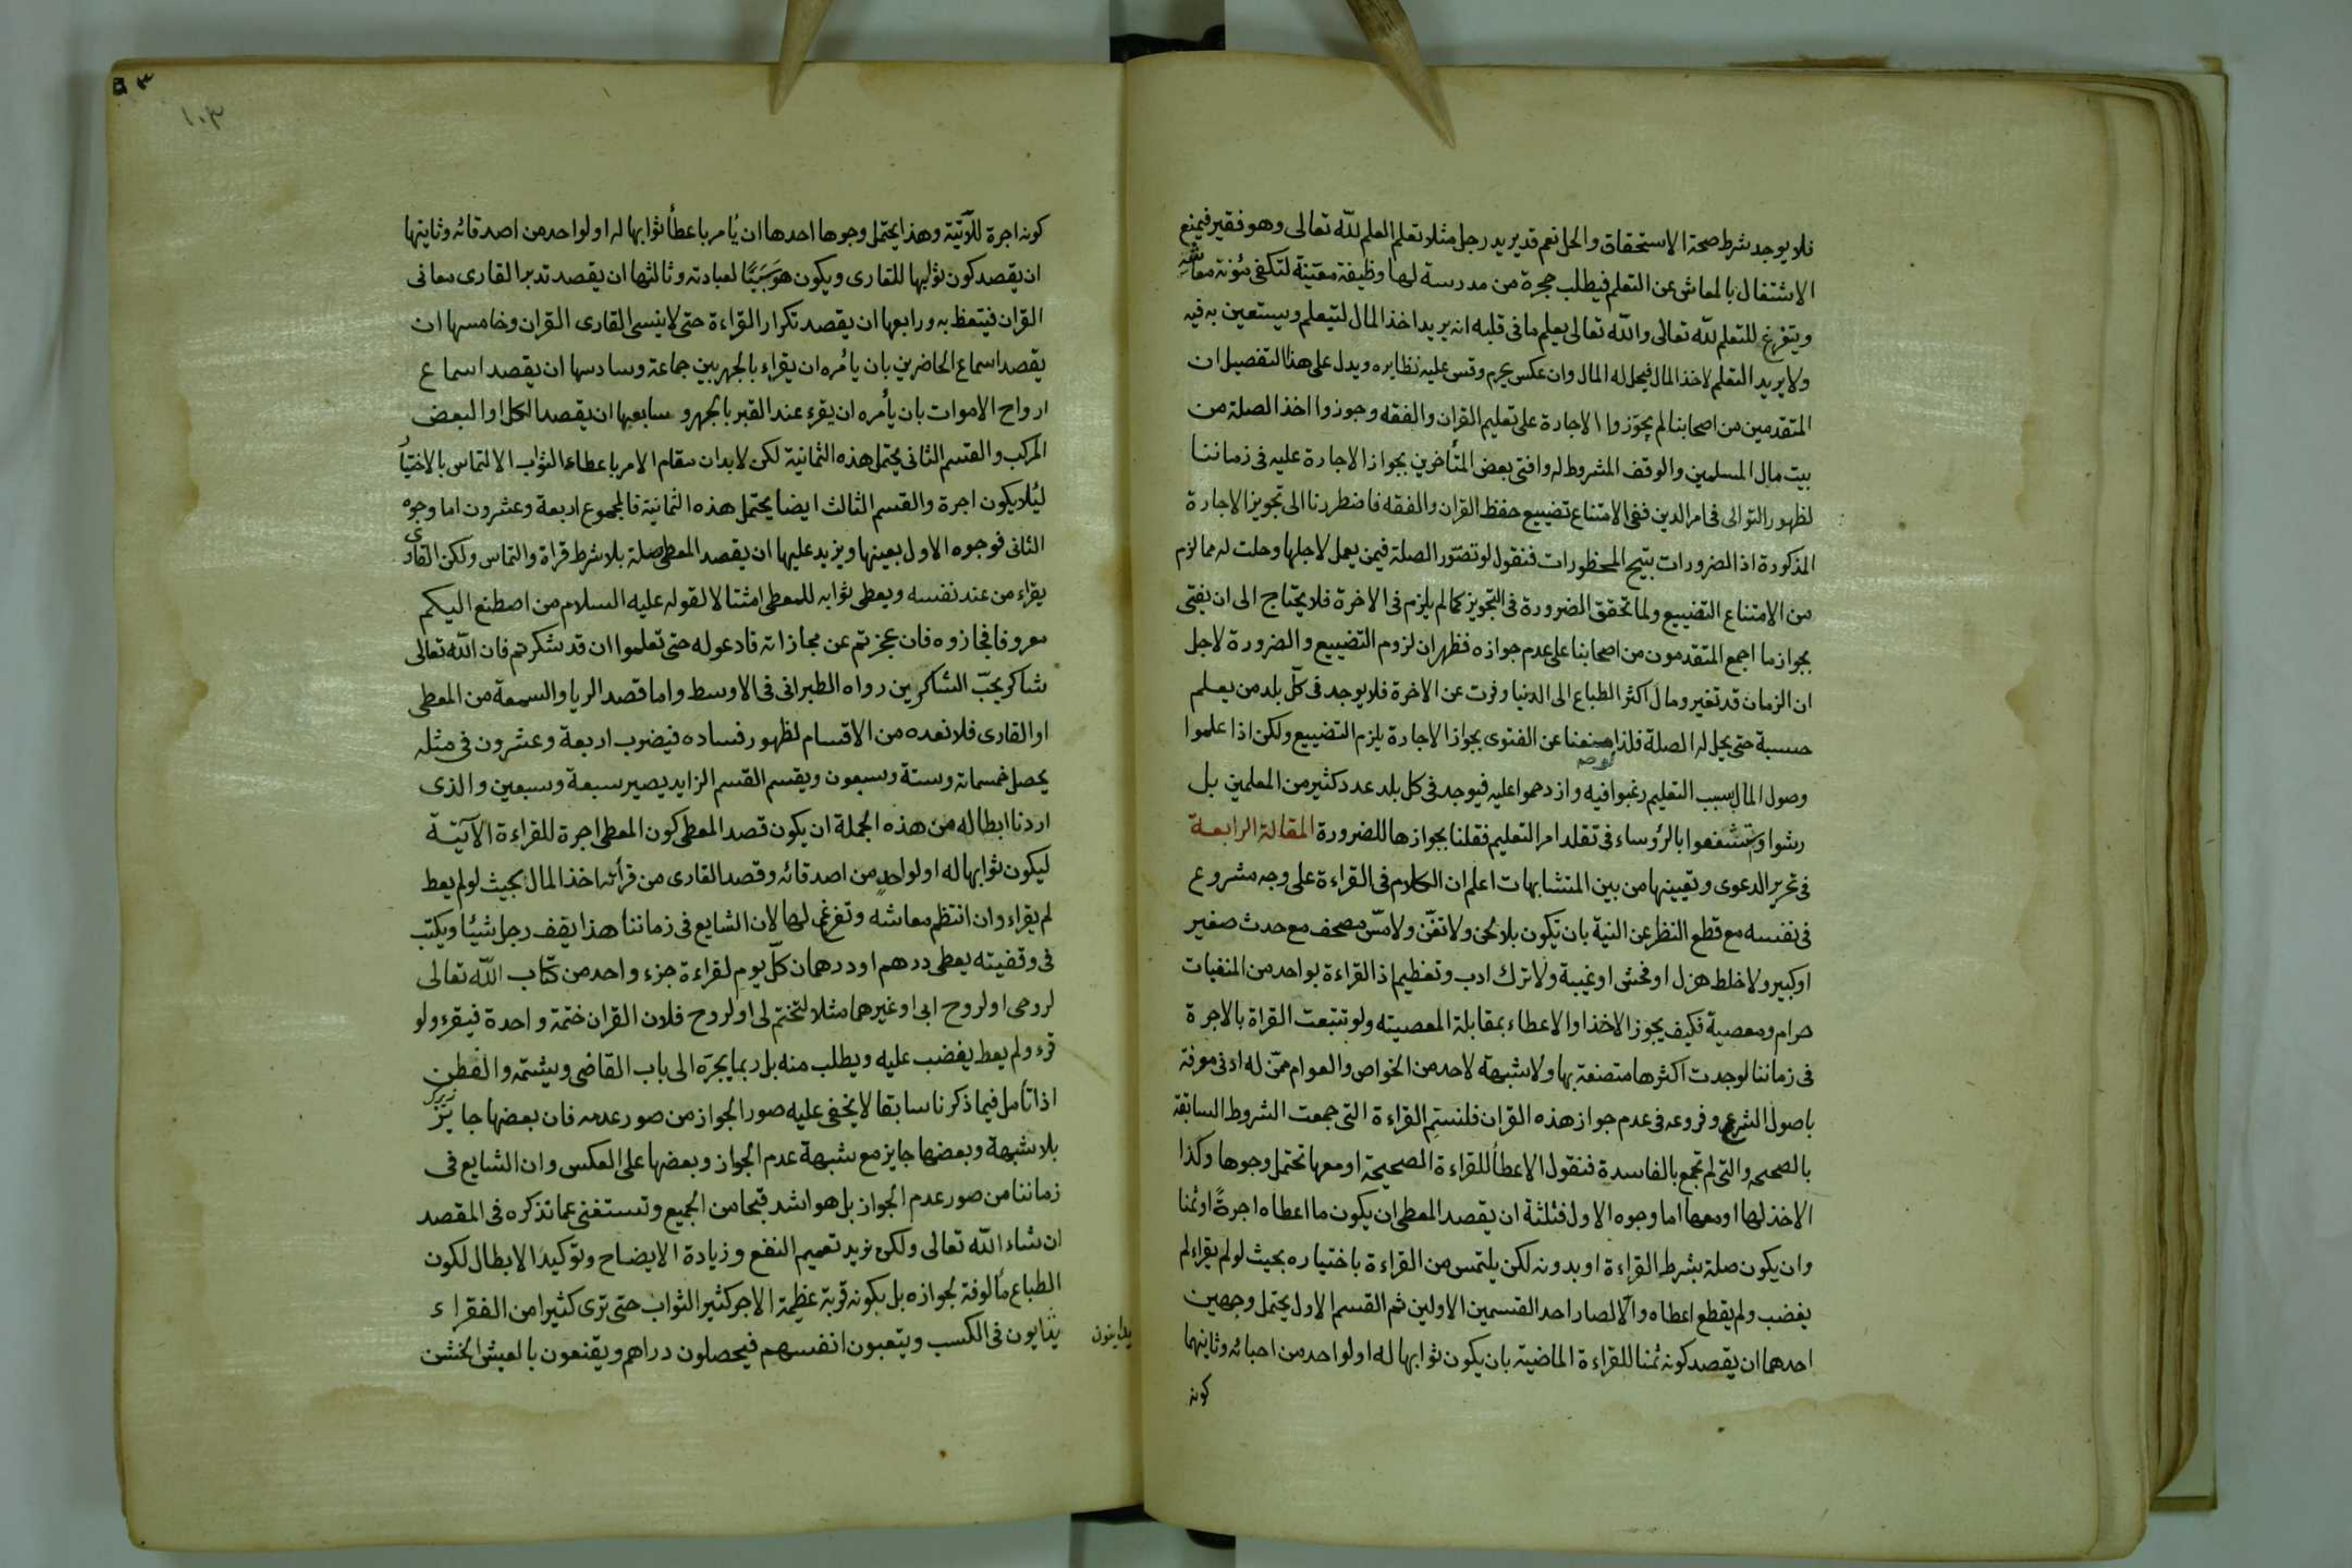 فلا يوجد شرط صحة الاستحقاق والحل نعم قد يريد رجل مثلا تعلم العلم لله تعالى وهو فقير فيمنع
الاشتغال بالمعاش عن التعلم فيطلب حجرة من مدرسة لها وظيفة معينة لتكفى مئونة معاشه
ويتفرغ للتعلم لله تعالى والله تعالى يعلم ما فى قلبه انه يريد اخذ المال ليتعلم ويستعين به فيه
ولا يريد التعلم لاخذ المال فيحل له المال وان عكس يحرم وقس عليه نظايره ويدل على هذا التفصيل ان
المتقدمين من اصحابنا لم يجوزوا الاجارة على تعليم القران والفقه وجوزوا اخذ الصلة من
بيت مال المسلمين والوقف المشروط له وافتى بعض المتأخرين بجواز الاجارة عليه فى زماننا
لظهور التوانى فى امر الدين ففى الامتناع تضييع حفظ القران والفقه فاضطررنا الى تجويز الاجارة
المذكورة اذ الضرورات تبيح المحظورات فنقول لو تصور الصلة فيمن يعمل لاجلها وحلت له مما لزم
من الامتناع التضييع ولما تحقق الضرورة فى التجويز كما لم يلزم فى الاخرة فلا يحتاج الى ان يفتى
بجواز ما اجمع المتقدمون من اصحابنا على عدم جوازه فظهر ان لزوم التضييع والضرورة لاجل
ان الزمان قد تغير ومال اكثر الطباع الى الدنيا وفرت عن الاخرة فلا يوجد فى كل بلد من يعلم
حسبة حتى يحل له الصلة فلذا عن الفتوى بجواز الاجارة يلزم التضييع ولكن اذا علموا
وصول المال بسبب التعليم رغبوا فيه وازدحموا عليه فيوجد فى كل بلد عدد كثير من المعلمين بل
رشوا وتشفعوا بالرؤساء فى تقلد امر التعليم فقلنا بجوازها للضرورة المقالة الرابعة
فى تحرير الدعوى وتعيينها من بين المتشابهات اعلم ان الكلام فى القراءة على وجه مشروع
فى نفسه مع قطع النظر عن النية بان تكون بلا لحن ولا تغن ولا مس مصحف مع حدث صغير
او كبير ولا خلط هزل او فحش او غيبة ولا ترك ادب وتعظيم اذ القراءة بواحد من المنفيات
حرام ومعصية فكيف يجوز الاخذ او الاعطاء بمقابلة المعصيته ولو تتبعت القراة بالاجرة
فى زماننا لوجدت اكثرها متصفة بها ولا شبهة لاحد من الخواص والعوام ممن له ادنى معرفة
باصول الشرع وفروعه فى عدم جواز هذه القران فلنسم القراءة التى جمعت الشروط السابقة
بالصحيح والتى لم تجمع بالفاسدة فنقول الاعطأ للقراءة الصحيحة او معها تحتمل وجوها وكذا
الاخذ لها او معها اما وجوه الاول فثلثة ان يقصد المعطى ان يكون ما اعطاه اجرة او ثمنا
وان يكون صلة بشرط القراءة او بدونه لكن يلتمس من القراءة باختياره بحيث لو لم يقراء لم
يغضب ولم يقطع اعطاه والا لصار احد القسمين الاولين ثم القسم الاول يحتمل وجهين
احدهما ان يقصد كونه ثمنا للقراءة الماضية بان يكون ثوابها له او لواحد من احبائه وثانيهما
كونه
١٠٣
كونه اجرة للآتية وهذا يحتمل وجوها احدها ان يأمر باعطأ ثوابها له او لواحد من اصدقائه وثانيها
ان يقصد كون ثوابها للقارى ويكون هو سببا لعبادته وثالثها ان يقصد تدبر القارى معانى
القران فيتعظ به ورابعها ان يقصد تكرار القراءة حتى لا ينسى القارى القران وخامسها ان
يقصد اسماع الحاضرين بان يأمره ان يقراء بالجهر بين جماعة وسادسها ان يقصد اسماع
ارواح الاموات بان يأمره ان يقرء عند القبر بالجهر وسابعها ان يقصد الكل او البعض
المركب والقسم الثانى يحتمل هذه الثمانية لكن لابد ان مقام الامر باعطاء الثواب الالتماس بالاختيا
ليلا يكون اجرة والقسم الثالث ايضا يحتمل هذه الثمانية فالمجموع اربعة وعشرون اما وجوه
الثانى فوجوه الاول بعينها ويزيد عليها ان يقصد المعطى صلة بلا شرط قراة والتماس ولكن القارى
يقراء من عند نفسه ويعطى ثوابه للمعطى امتثالا لقوله عليه السلام من اصطنع اليكم
معروفا فجازوه فان عجزتم عن مجازاته فادعوله حتى تعلموا ان قد شكرتم فان الله تعالى
شاكر يحب الشاكرين رواه الطبرانى فى الاوسط واما قصد الريا والسمعة من المعطى
او القارى فلا نعده من الاقسام لظهور فساده فيضرب اربعة وعشرون فى مثله
يحصل خمسمائة وستة وسبعون وبقسم القسم الزايد يصير سبعة وسبعين والذى
اردنا ابطاله من هذه الجملة ان يكون قصد المعطى كون المعطى اجرة للقراءة الآتية
ليكون ثوابها له او لواحد من اصدقائه وقصد القارى من قرأته اخذ المال بحيث لو لم يعط
لم يقراء وان انتظم معاشه وتفرغ لها لان الشايع فى زماننا هذا يقف رجل شيئا ويكتب
فى وقفيته يعطى درهم او درهمان كل يوم لقراءة جزء واحد من كتاب الله تعالى
لروحى او لروح ابى او غيرهما مثلا لتختم لى او لروح فلان القران ختمة واحدة فيقرء ولو
قرء ولم يعط يغضب عليه ويطلب منه بل ربما يجره الى باب القاضى ويشتمه والفطن
اذا تأمل فيما ذكرنا سابقا لا يخفى عليه صور الجواز من صور عدمه فان بعضها جايز
بلا شبهة وبعضها جايز مع شبهة عدم الجواز وبعضها على العكس وان الشايع فى
زماننا من صور عدم الجواز بل هو اشد قبحا من الجميع وتستغنى عما تذكره فى المقصد
ان شاء الله تعالى ولكن نريد تعميم النفع وزيادة الايضاح وتوكيد الابطال لكون
الطباع مألوفة لجوازه بل بكونه قربة عظيمة الاجر كثير الثواب حتى ترى كثيرا من الفقراء
فى الكسب ويتعبون انفسهم فيحصلون دراهم ويقنعون بالعيش الخشن